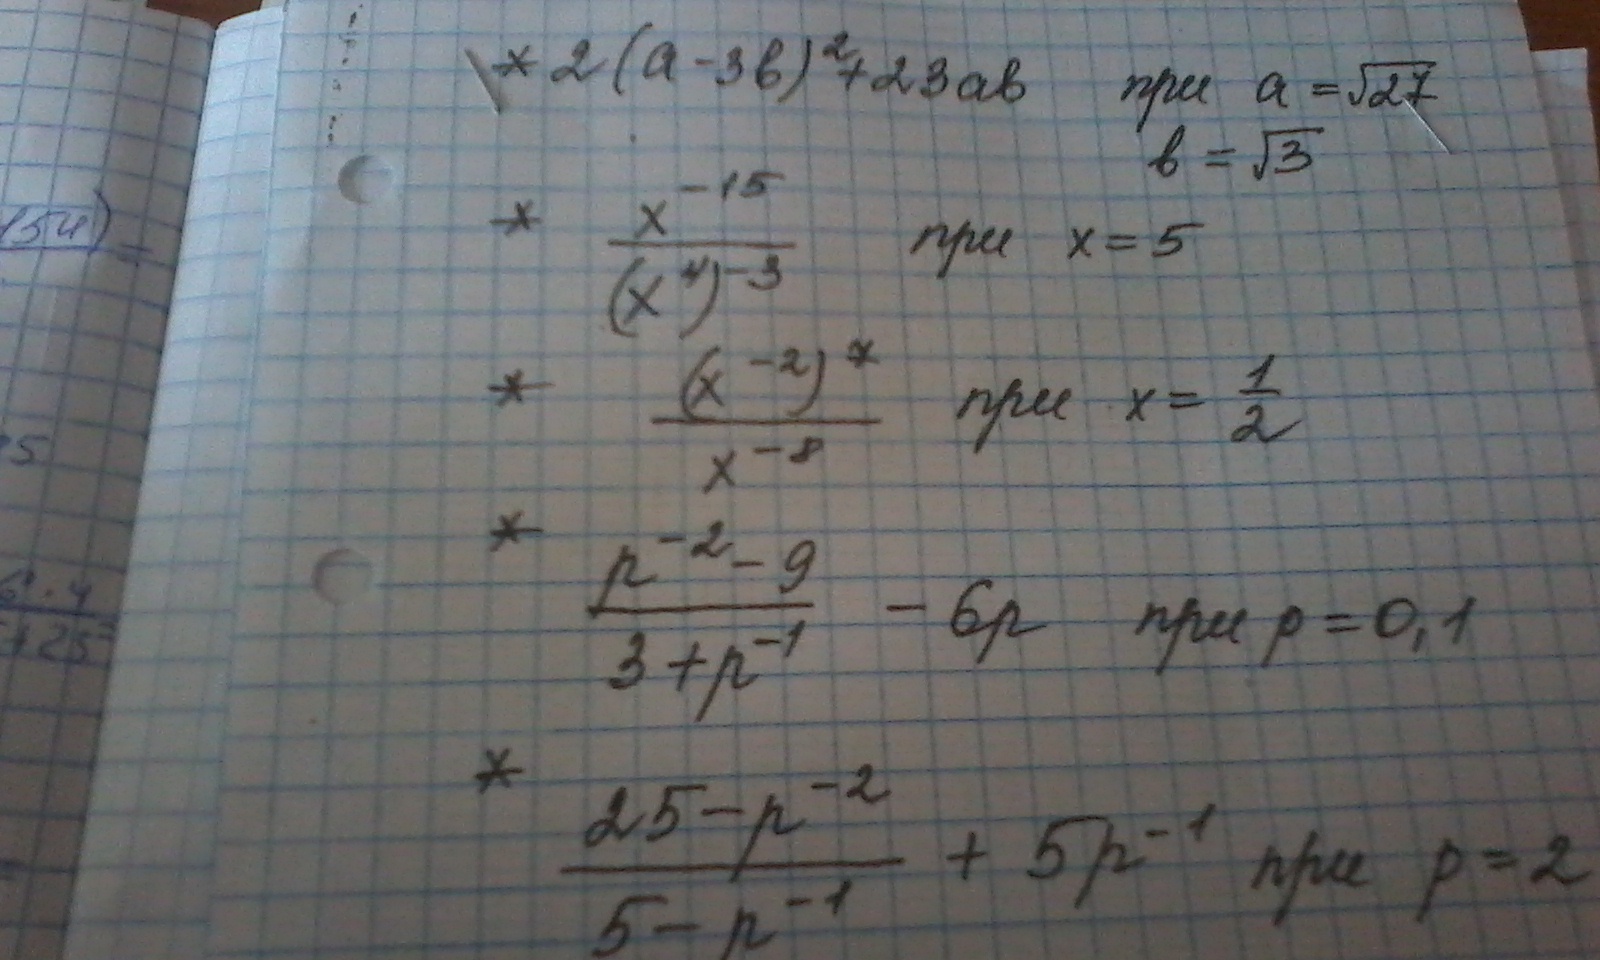 * 2(a-3b)²+23ab при a=√27
b=√3
* x⁻¹⁵/(x⁴)⁻³ при x=5
* (x⁻²)⁷/x⁻⁸ при x=1/2
* (p⁻²-9)/(3+p⁻¹) - 6p при p=0,1
* (25-p⁻²)/(5-p⁻¹) + 5p⁻¹ при p=2
154)
5
+25